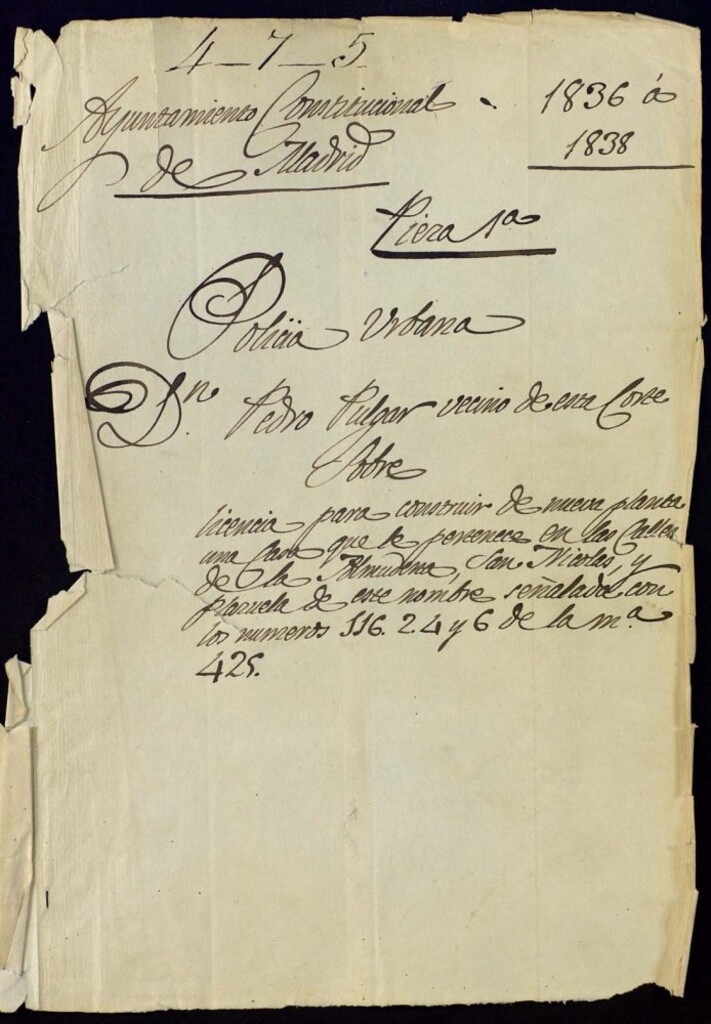 4-7-5
Ayuntamiento Constitucional
de Madrid
1836 á
1838
Pieza 1ª
Policia Urbana
Dn. Pedro Pulgar vecino de esta Corte
Sobre
licencia para construir de nueva planta
una Casa que le pertenece en las Calles
de la Almudena, San Nicolás, y
plazuela de este nombre señalada con
los numeros 116. 2. 4 y 6 de la mª.
425.